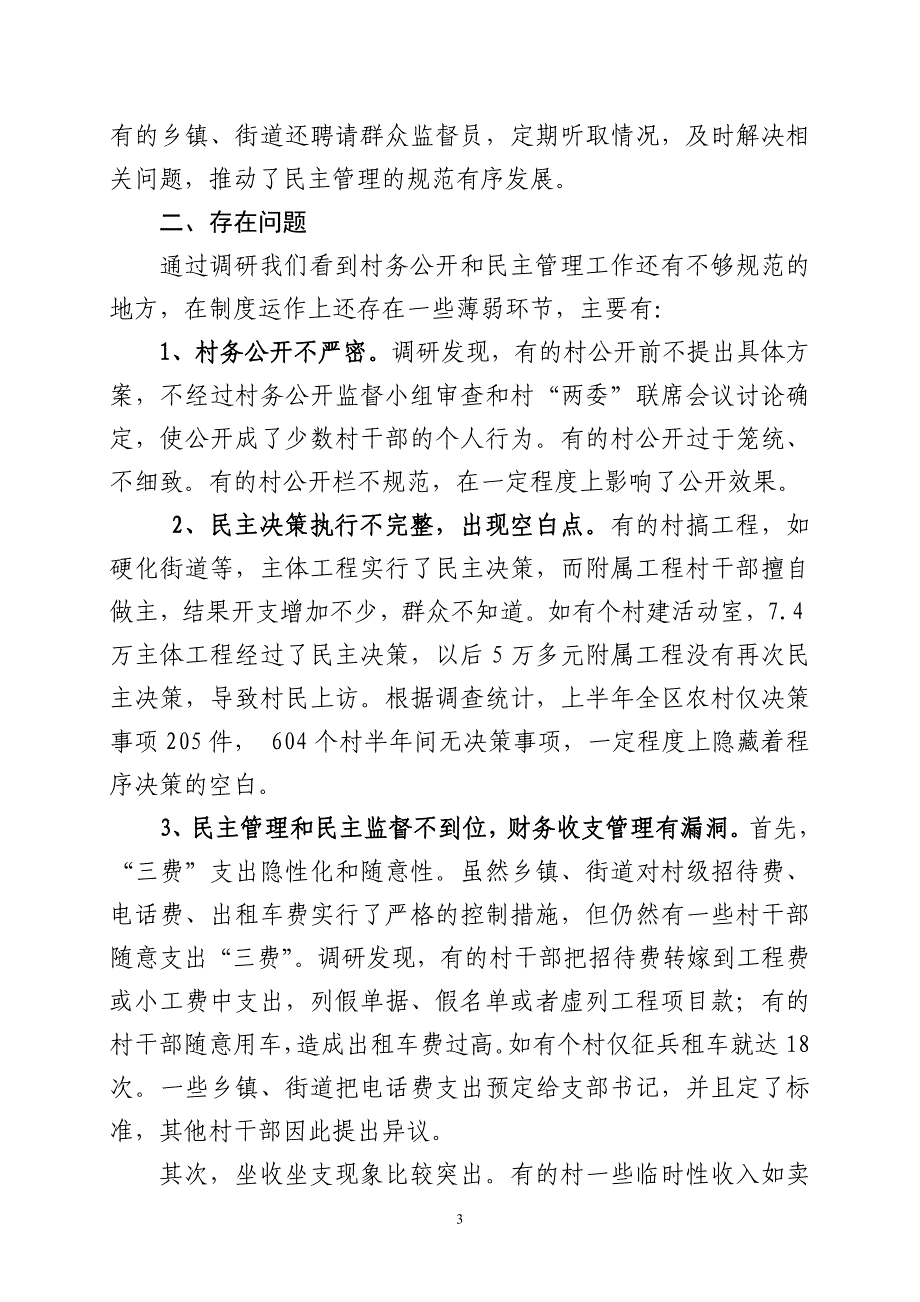 有的乡镇、街道还聘请群众监督员，定期听取情况，及时解决相
关问题，推动了民主管理的规范有序发展。
二、存在问题
通过调研我们看到村务公开和民主管理工作还有不够规范的
地方，在制度运作上还存在一些薄弱环节，主要有：
1、村务公开不严密。调研发现，有的村公开前不提出具体方
案，不经过村务公开监督小组审查和村“两委”联席会议讨论确
定，使公开成了少数村干部的个人行为。有的村公开过于笼统、
不细致。有的村公开栏不规范，在一定程度上影响了公开效果。
2、民主决策执行不完整，出现空白点。有的村搞工程，如
硬化街道等，主体工程实行了民主决策，而附属工程村干部擅自
做主，结果开支增加不少，群众不知道。如有个村建活动室，7.4
万主体工程经过了民主决策，以后 5 万多元附属工程没有再次民
主决策，导致村民上访。根据调查统计，上半年全区农村仅决策
事项 205 件， 604 个村半年间无决策事项，一定程度上隐藏着程
序决策的空白。
3、民主管理和民主监督不到位，财务收支管理有漏洞。首先，
“三费”支出隐性化和随意性。虽然乡镇、街道对村级招待费、
电话费、出租车费实行了严格的控制措施，但仍然有一些村干部
随意支出“三费”。调研发现，有的村干部把招待费转嫁到工程费
或小工费中支出，列假单据、假名单或者虚列工程项目款；有的
村干部随意用车，造成出租车费过高。如有个村仅征兵租车就达 18
次。一些乡镇、街道把电话费支出预定给支部书记，并且定了标
准，其他村干部因此提出异议。
其次，坐收坐支现象比较突出。有的村一些临时性收入如卖
3